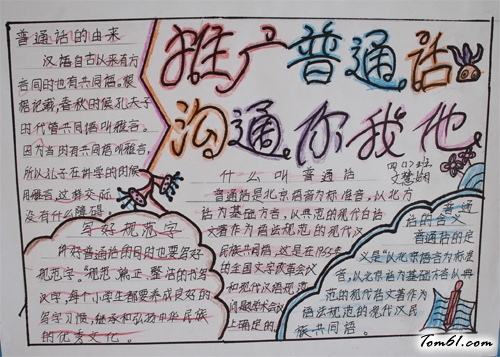 普通话的由来
汉语自古以来有方
言同时也有共同语。根
据记载,春秋时候孔夫子
的时代管共同语叫雅言。
因为当时有共同语叫雅言,
所以孔子在讲学的时候
用雅言,这样交际
没有什么障碍!
推广普通话
沟通你我他
四(1)班
什么叫普通话
普通话是北京语音为标准音,以北方
话为基础方言,以典范的现代白话
文著作为语法规范的现代汉
民族共同语,这是在1955年
的全国文字改革会议
和现代汉语规范
问题学术会议
上确定的。
写好规范字
许好普通话的同时也要写好
规范字。"规范、端正、整洁的书写
汉字,每个小学生都要养成良好的
写字习惯,继承和弘扬中华民族
的优秀文化。
普通
话的含义
普通话的定
义是"以北京语音为标准
音,以北京话为基础方言从典
范的现代话文著作为
语法规范的现代汉民
族共同语。
Tom61.com